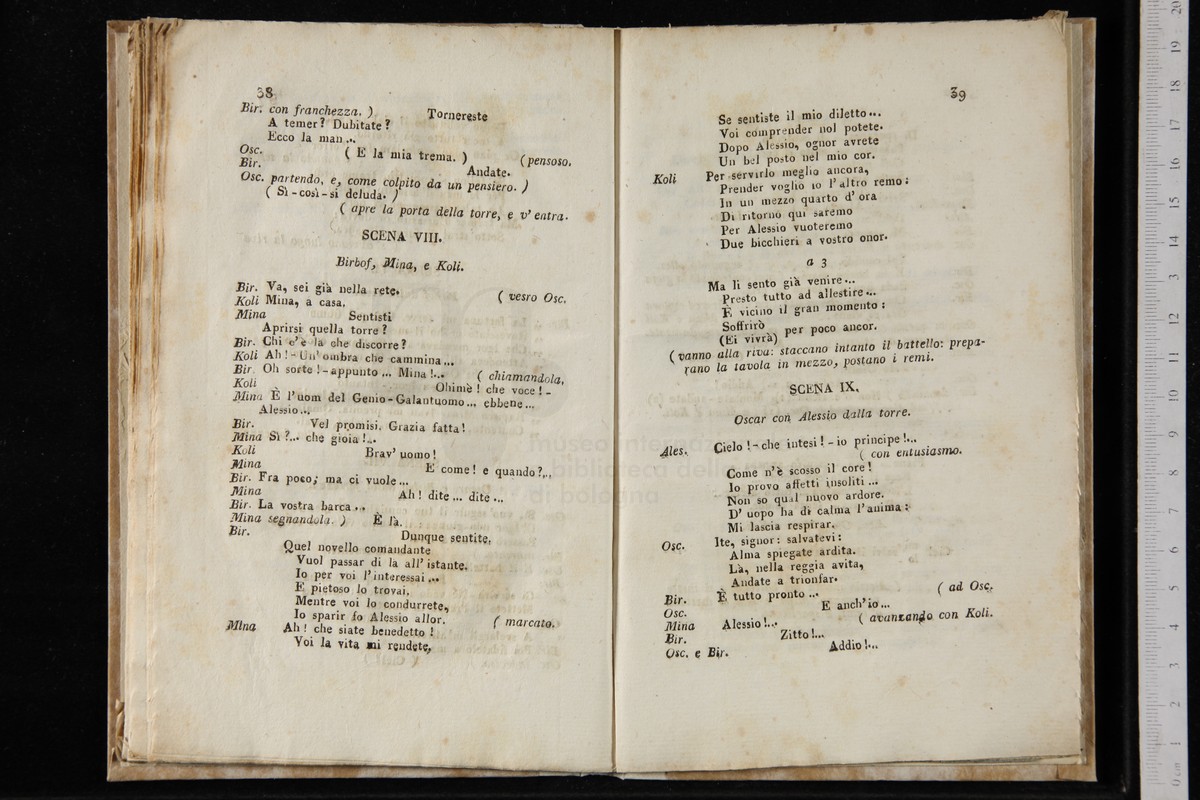 38
Bir. con franchezza. ) Tornereste
A temer? Dubitate?
Ecco la man...
Osc. ( E la mia trema. ) (pensoso.
Bir. Andate.
Osc. partendo, e, come colpito da un pensiero. )
( Sì-così-si deluda. )
( apre la porta della torre, e v' entra.
SCENA VIII.
Birbof, Mina, e Koli.
Bir. Va, sei già nella rete. ( vesro Osc.
Koli Mina, a casa.
Mina Sentisti
Aprirsi quella torre?
Bir. Chi c'è là che discorre?
Koli Ah! - Un' ombra che cammina...
Bir. Oh sorte! - appunto ... Mina!... ( chiamandola,
Koli Ohimè! che voce! -
Mina È l'uom del Genio-Galantuomo... ebbene...
Alessio...
Bir. Vel promisi. Grazia fatta!
Mina Sì?... che gioia!..
Koli Brav' uomo!
Mina E come! e quando?...
Bir. Fra poco; ma ci vuole...
Mina Ah! dite... dite...
Bir. La vostra barca...
Mina segnandola. ) È là.
Bir. Dunque sentite.
Quel novello comandante
Vuol passar di là all' istante.
Io per voi l'interessai...
E pietoso lo trovai.
Mentre voi lo condurrete,
Io sparir fo Alessio allor. ( marcato.
Mina Ah! che siate benedetto!
Voi la vita mi rendete,
39
Se sentiste il mio diletto...
Voi comprender nol potete.
Dopo Alessio, ognor avrete
Un bel posto nel mio cor.
Koli Per servirlo meglio ancora,
Prender voglio io l'altro remo:
In un mezzo quarto d' ora
Di ritorno qui saremo
Per Alessio vuoteremo
Due bicchieri a vostro onor.
a 3
Ma li sento già venire...
Presto tutto ad allestire...
È vicino il gran momento:
Soffrirò per poco ancor.
(Ei vivrà)
( vanno alla riva: staccano intanto il battello: prepa-
rano la tavola in mezzo, postano i remi.
SCENA IX.
Oscar con Alessio dalla torre.
Ales. Cielo! - che intesi! - io principe!...
( con entusiasmo.
Come n'è scosso il core!
Io provo affetti insoliti...
Non so qual nuovo ardore.
D' uopo ha di calma l'anima:
Mi lascia respirar.
Osc. Ite, signor: salvatevi:
Alma spiegate ardita.
Là, nella reggia avita,
Andate a trionfar.
Bir. È tutto pronto... ( ad Osc.
Osc. E anch'io...
Mina Alessio!... ( avanzando con Koli.
Bir. Zitto!...
Osc. e Bir. Addio!...
museo internaz
biblioteca della
di bologna